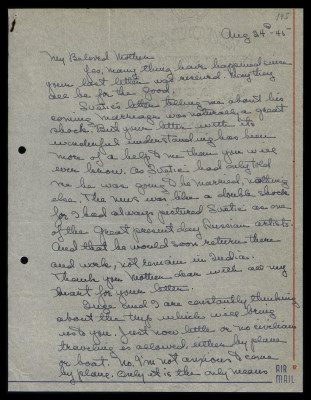 145
Aug 24th - 45
My Beloved Mother
Yes, many thing have happened since
your last letter was received. Anything
all be for the good.
Svetie's letter telling me about his
coming marriage was naturaly a great
shock. But your letter with its
wonderful understanding has been
more of a help to me than you will
ever know. As Svetie had only told
me he was going to be married, nothing
else. The news was like a double shock
for I had always pictured Svetie as one
of the great present day Russian artists.
And that he would soon return there
and work, not remain in India.
Thank you Mother dear with all my
heart for your letter.
and I are constantly thinking
about the trip which will bring
us to you. Just now little or no civilian
traveling is allowed, either by plane
or boat. No, I'm not anxious to come
by plane. Only it is the only means
AIR
MAIL